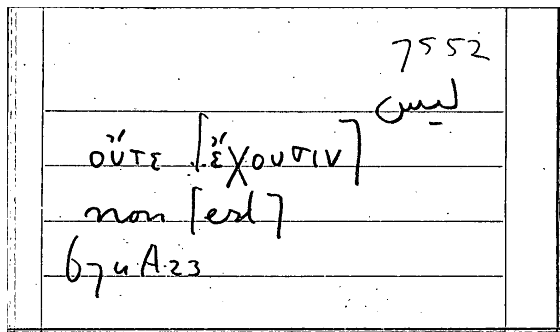 7552
ليس
οὔτε [ἔχουσιν]
non [est]
67u A 23